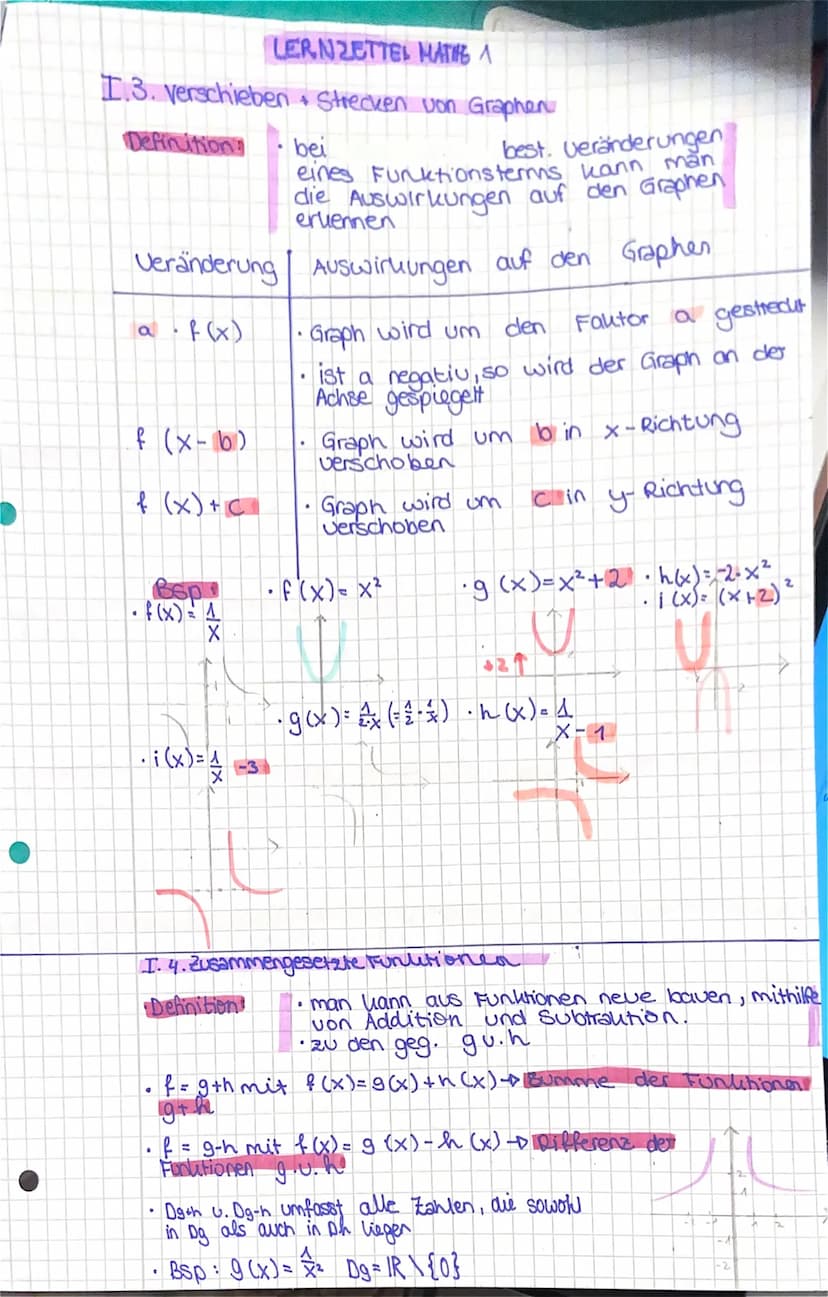 LERNZETTEL MATHE 1
I.3. Verschieben + Strecken von Graphen
Definition: · bei best. Veränderungen
eines Funktionsterms kann man
die Auswirkungen auf den Graphen
erkennen
Veränderung | Auswirkungen auf den Graphen
a · f(x) · Graph wird um den Faktor a gestreckt
· ist a negativ, so wird der Graph an der
Achse gespiegelt
f (x-b) · Graph wird um b in x-Richtung
verschoben
f (x)+c · Graph wird um c in y-Richtung
verschoben
Bsp: · f(x)= x² · g(x)=x²+2 · h(x)=-2·x²
· f(x)= 1/x · i(x)= (x+2)²
+2↑
· g(x)= 1/2·x (=1/2·1/x) · h(x)= 1/x-1
· i(x)= 1/x -3
I.4. Zusammengesetzte Funktionen
Definition: · man kann aus Funktionen neue bauen, mithilfe
von Addition und Subtraktion.
· zu den geg. g u. h
· f = g+h mit f(x)=g(x)+h(x) → Summe der Funktionen
g+h
· f = g-h mit f(x)= g(x)-h(x) → Differenz der
Funktionen g u. h
· Dg+h u. Dg-h umfasst alle Zahlen, die sowohl
in Dg als auch in Dh liegen
· Bsp: g(x)= 1/x² Dg=ℝ\{0}
2
1
-2 -1 1 2
-1
-2